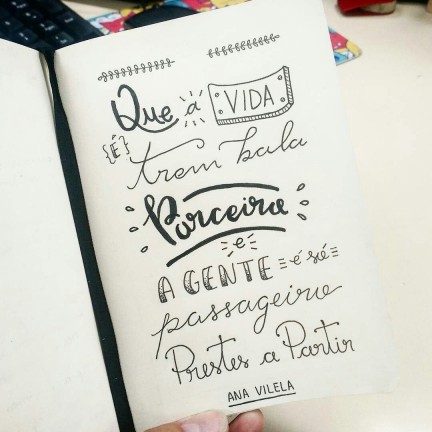 Que a VIDA
{É}
trem bala
Parceiro
e
A GENTE é só
passageiro
Prestes a Partir
ANA VILELA